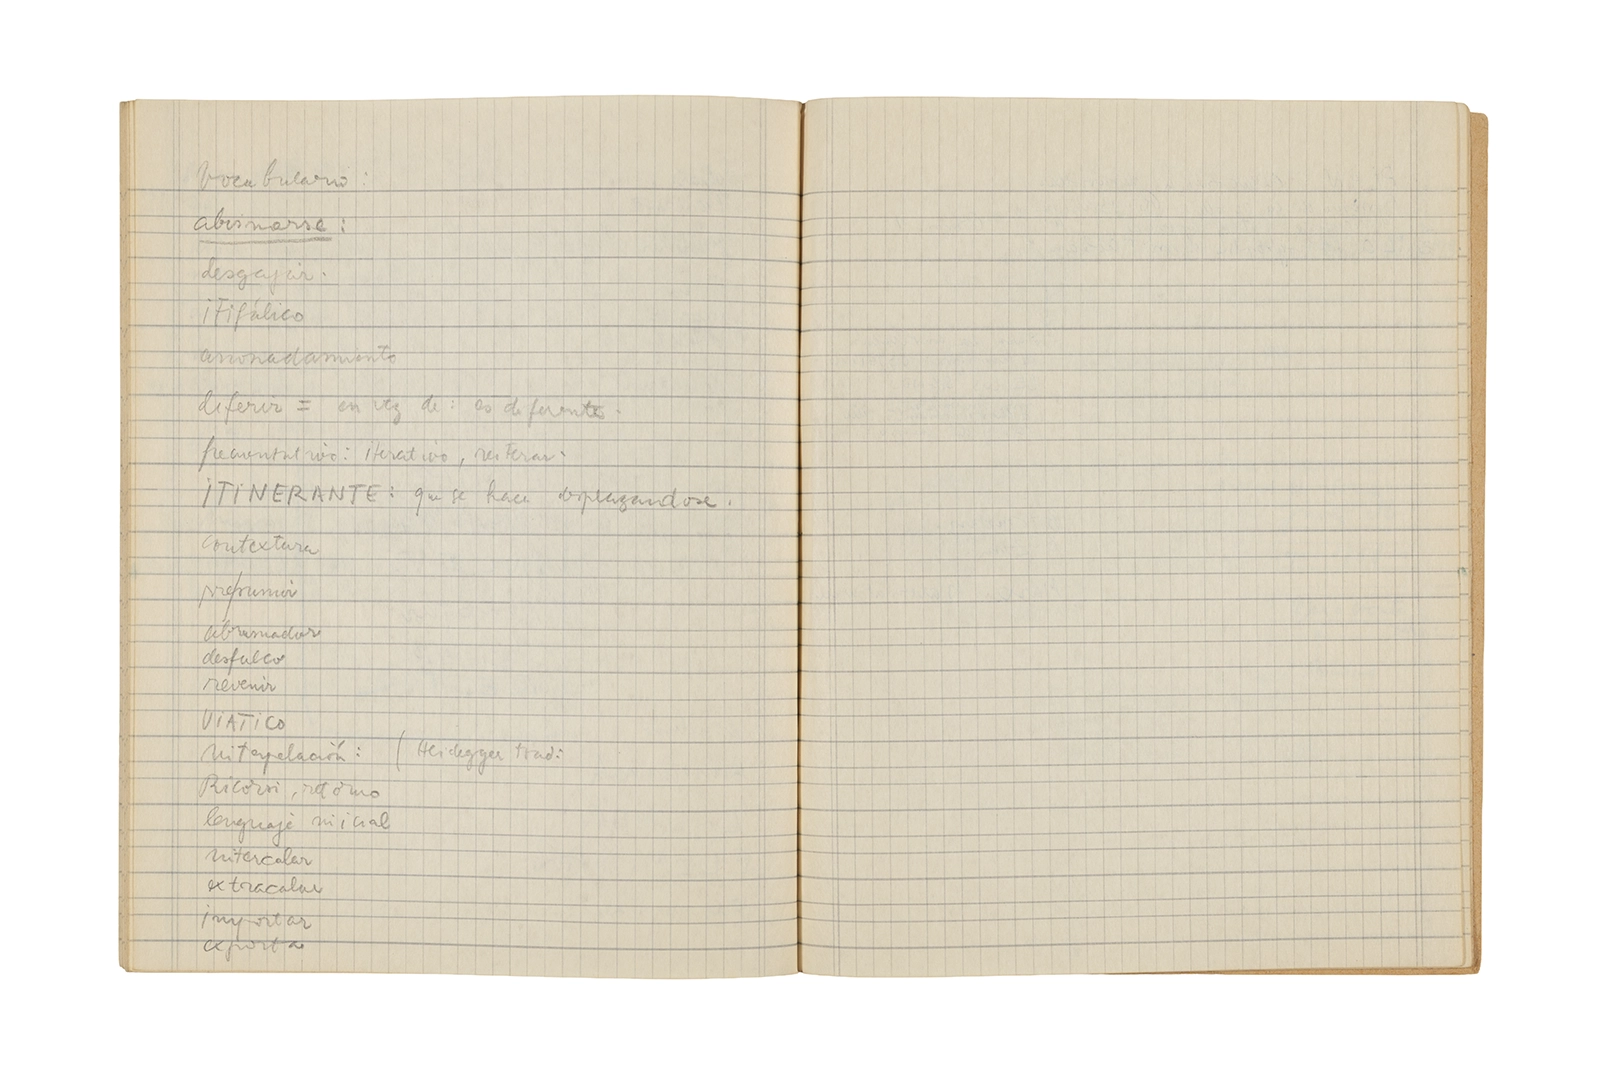 Vocabulario:
abismarse:
desgajar.
iTifálico
anonadamiento
diferir = en vez de: es diferente.
frecuentativo: iterativo, reiterar.
iTiNERANTE: que se hace desplazandose.
contextura
presumir
abrumador
desfalco
revenir
ViATiCO
interpelación: ( Heidegger trad:
Ricorsi, retorno
lenguaje inicial
intercalar
extracalar
importar
exporta